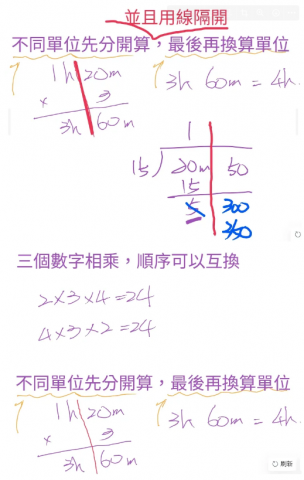 並且用線隔開
不同單位先分開算，最後再換算單位
1h 20m
× 3
3h 60m
3h 60m = 4h
1
15 20m 50
15
5 300
350
三個數字相乘，順序可以互換
2×3×4=24
4×3×2=24
不同單位先分開算，最後再換算單位
1h 20m
× 3
3h 60m
3h 60m = 4h
刷新